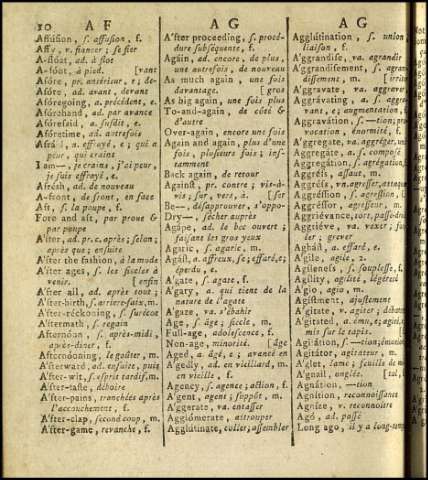 10 A F
Affúsion, s. affusion, f.
Affy, v. fiancer; se fier
A-flóat, ad. à flot
A-fóot, à pied. [vant
Afóre, pr. antérieur, e; de-
Afóre, ad. avant, devant
Afóregoing, a. précédent, e.
Afórehand, ad. par avance
Afóresaid, a. susdit, e.
Afóretime, ad. autrefois
Afráid, a. effrayé, e; qui a
peur, qui crains
I am—, je crains, j'ai peur,
je suis effrayé, e.
Afrésh, ad. de nouveau
A-front, de front, en face
Aft, s. la poupe, f.
Fore and aft, par proue &
par poupe
A'fter, ad. pr. c. après; selon;
après que; ensuite
A'fter the fashion, à la mode
A'fter ages, s. les siecles à
venir. [enfin
A'fter all, ad. après tout;
A'fter-birth, s. arriere-faix, m.
A'fter-réckoning, s. surécot
A'ftermath, s. regain
Afternóon, s. après-midi,
après-diner, f.
Afternóoning, le goûter, m.
A'fterward, ad. ensuite, puis
A'fter-wit, s. esprit tardif, m.
A'fter-taste, déboire
A'fter-pains, tranchées après
l'accouchement, f.
A'fter-clap, second coup, m.
A'fter-game, revanche, f.
A G
A'fter proceeding, s. procé-
dure subséquente, f.
Again, ad. encore, de plus,
une autrefois, de nouveau
As much again, une fois
davantage. [gros
As big again, une fois plus
To-and-again, de côté &
d'autre
Over-again, encore une fois
Again and again, plus d'une
fois, plusieurs fois; in-
cessamment
Back again, de retour
Against, pr. contre; vis-à-
vis; sur, vers, à. [ser
Be—, désapprouver, s'oppo-
Dry—, sécher auprès
Agápe, ad. le bec ouvert;
faisant les gros yeux
Agáric, s. agaric, m.
Agást, a. affreux, se; effaré, e;
éperdu, e.
A'gate, s. agate, f.
A'gaty, a. qui tient de la
nature de l'agate
Agaze, va. s'ébahir
Age, s. âge; siecle, m.
Full-age, adolescence, f.
Non-age, minorité. [âge
Aged, a. âgé, e; avancé en
A'gedly, ad. en vieillard, m.
en vieille, f.
Agency, s. agence; action, f.
A'gent, agent; suppôt, m.
A'ggerate, va. entasser
Agglómerate, attrouper
Agglútinate, coller; assembler
A G
Agglutinátion, s. union
liaison, f.
A'ggrandise, va. agrandir
A'ggrandísement, s. agran-
dissement, m. [irrite
A'ggravate, va. aggraver
A'ggravating, a. aggra-
vant, e; augmentation,
Aggravátion, s. —tion; pro-
vocation, énormité, f.
A'ggregate, va. aggréger, un
A'ggregate, a. s. composé
Aggregátion, s. agrégation,
Aggréss, assaut, m.
Aggréss, vn. agresser, attaque
Aggréssion, s. agression, f.
Aggréssor, agresseur, m.
Aggriévance, tort, passe-dro
Aggriéve, va. vexer; fou-
ler; grever
Aghást, a. effaré, e.
A'gile, agile, 2.
Agileness, s. souplesse, f.
Agílity, agilité, légéreté
Agio, agio, m.
Agístment, ajustement
A'gitate, v. agiter; débatt
A'gitated, a. ému, e; agité,
mis sur le tapis.
Agitátion, s. —tion; émotion
Agitátor, agitateur, m.
A'glet, lame; feuille de m
A'gnail, onglée. [tal,
Agnátion, —tion
Agnítion, reconnoissance
Agníze, v. reconnoître
Agó, ad. passé
Long ago, il y a long-temps